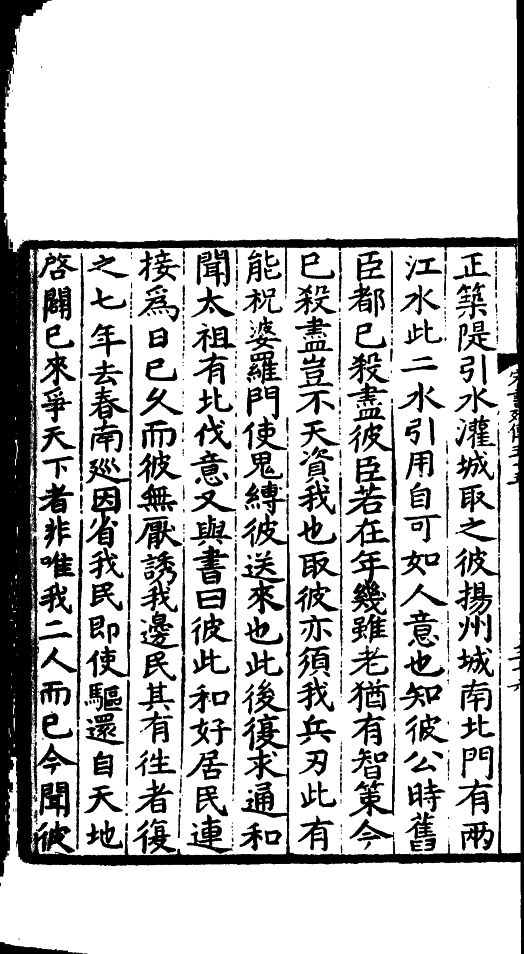 正築隄引水灌城取之彼揚州城南北門有兩
江水此二水引用自可如人意也知彼公時舊
臣都已殺盡彼臣若在年幾雖老猶有智策今
已殺盡豈不天資我也取彼亦須我兵刃此有
能祝婆羅門使鬼縛彼送來也此後復求通和
聞太祖有北伐意又與書曰彼此和好居民連
接爲日已久而彼無厭誘我邊民其有往者復
之七年去春南巡因省我民即使驅還自天地
啓闢已來爭天下者非唯我二人而已今聞彼